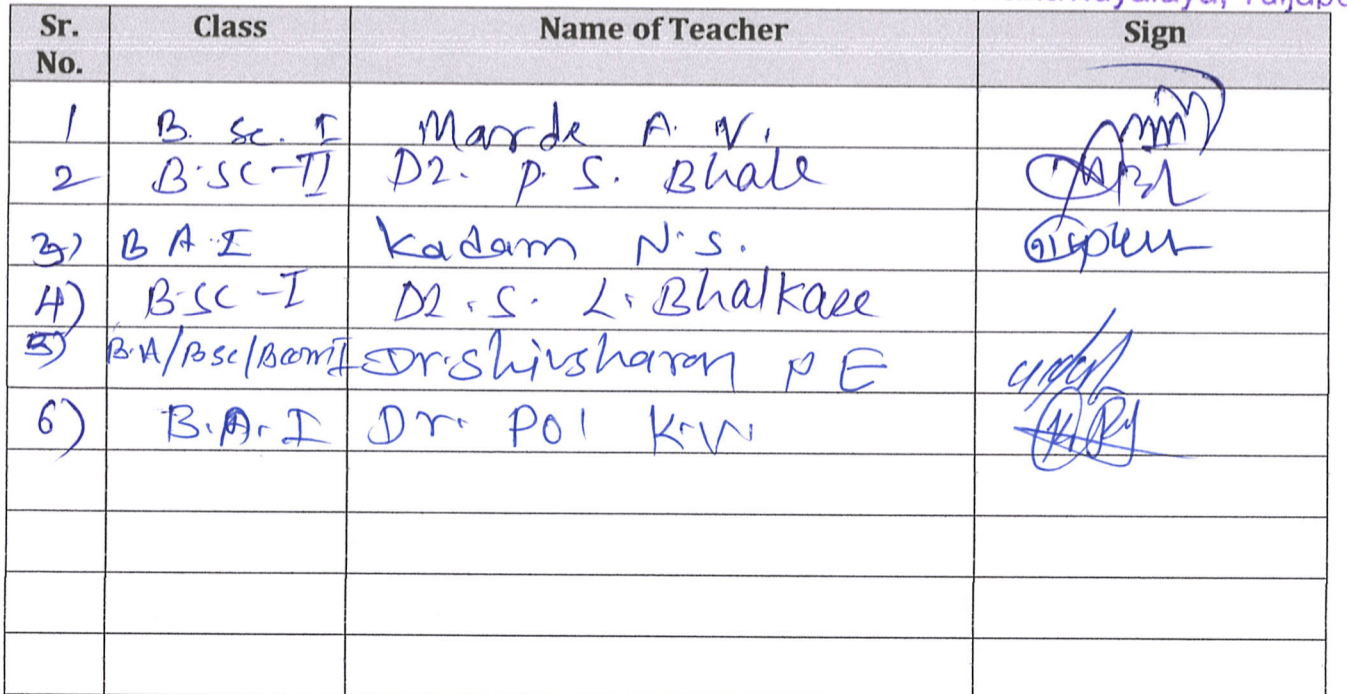 Sr. No. Class Name of Teacher Sign
1 B. Sc. I Marde A. V.
2 B.SC-II D2. P. S. Bhale
3) B A.I Kadam N.S.
4) B.SC-I D2. S. L. Bhalkare
5) B.A/Bsc/Bcom I Dr. Shivsharan P E
6) B.A.I Dr. Pol K.W